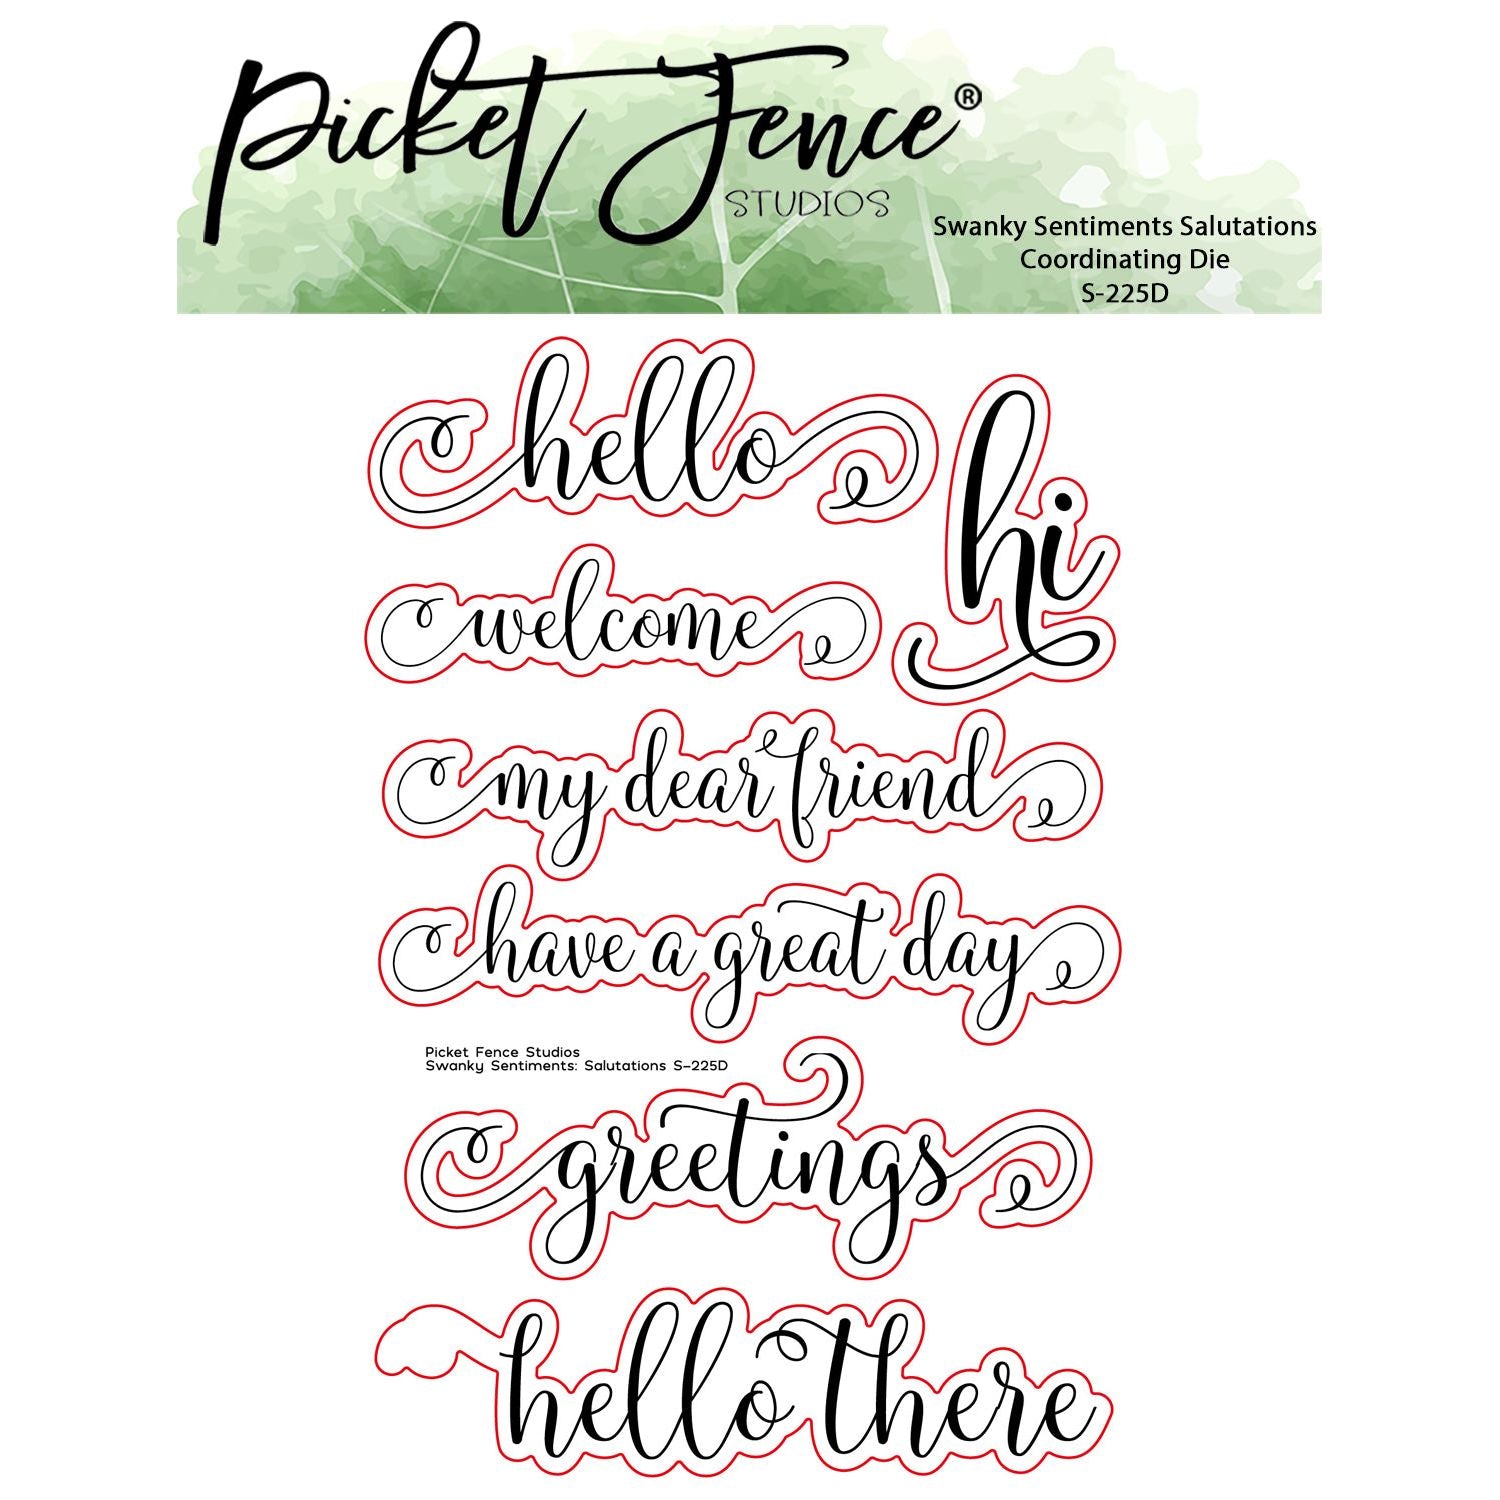 Picket Fence®
STUDIOS
Swanky Sentiments Salutations
Coordinating Die
S-225D
hello
hi
welcome
my dear friend
have a great day
Picket Fence Studios
Swanky Sentiments: Salutations S-225D
greetings
hello there